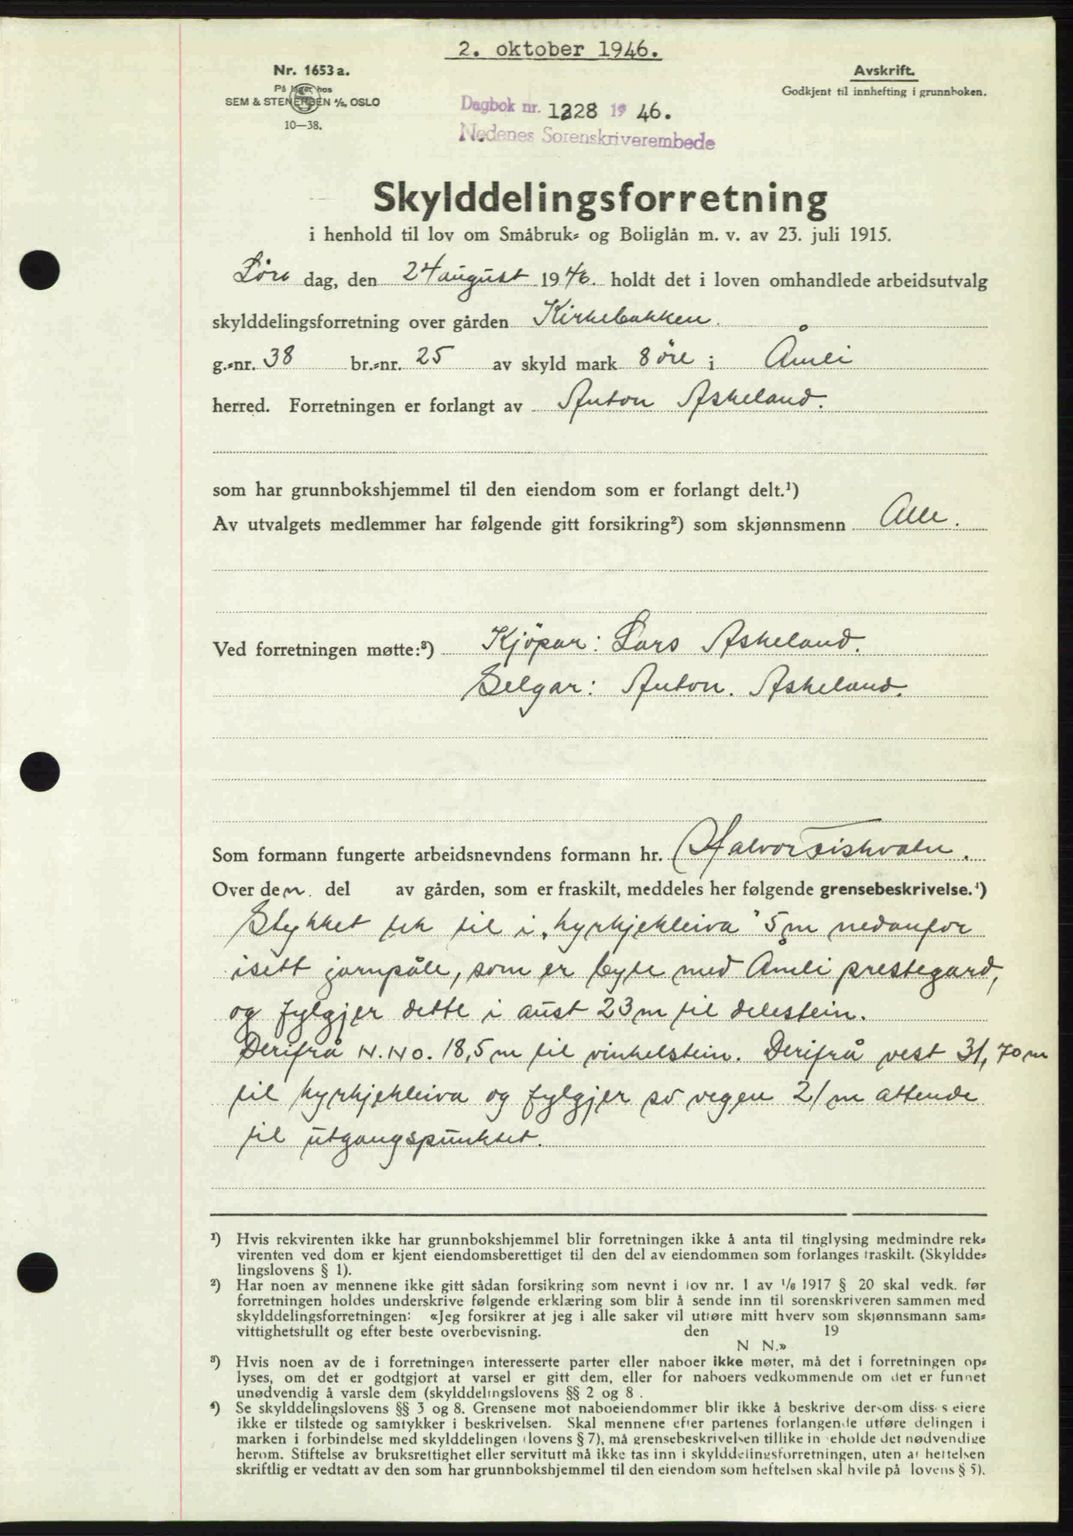 2. oktober 1946.
Nr. 1653 a.
På lager hos
SEM & STENERSEN A/S, OSLO
10—38.
Avskrift.
Godkjent til innhefting i grunnboken.
Dagbok nr. 1228 19 46.
Nedenes Sorenskriverembede
Skylddelingsforretning
i henhold til lov om Småbruk- og Boliglån m. v. av 23. juli 1915.
Lørdag, den 24 august 1946. holdt det i loven omhandlede arbeidsutvalg
skylddelingsforretning over gården Kirkebakken.
g.-nr. 38 br.-nr. 25 av skyld mark 8 öre i Åmli
herred. Forretningen er forlangt av Anton Askeland.
som har grunnbokshjemmel til den eiendom som er forlangt delt.¹)
Av utvalgets medlemmer har følgende gitt forsikring²) som skjønnsmenn Alle.
Ved forretningen møtte:³) Kjöpar: Lars Askeland.
Selgar: Anton. Askeland.
Som formann fungerte arbeidsnevndens formann hr. Halvor Fiskvatn.
Over den del av gården, som er fraskilt, meddeles her følgende grensebeskrivelse.⁴)
Stykket tek til i „kyrkjekleiva" 5 m nedanfor
isett jarnpåle, som er byte med Åmli prestegard,
og fylgjer dette i aust 23 m til delestein.
Derifrå N.NO. 18,5 m til vinkelstein. Derifrå vest 31,70 m
til kyrkjekleiva og fylgjer so vegen 21 m attende
til utgangspunktet.
¹) Hvis rekvirenten ikke har grunnbokshjemmel blir forretningen ikke å anta til tinglysing medmindre rek-
virenten ved dom er kjent eiendomsberettiget til den del av eiendommen som forlanges fraskilt. (Skyldde-
lingslovens § 1).
²) Har noen av mennene ikke gitt sådan forsikring som nevnt i lov nr. 1 av 1/6 1917 § 20 skal vedk. før
forretningen holdes underskrive følgende erklæring som blir å sende inn til sorenskriveren sammen med
skylddelingsforretningen: «Jeg forsikrer at jeg i alle saker vil utføre mitt hverv som skjønnsmann sam-
vittighetsfullt og efter beste overbevisning. den 19
N N.»
³) Hvis noen av de i forretningen interesserte parter eller naboer ikke møter, må det i forretningen op-
lyses, om det er godtgjort at varsel er gitt dem, eller for naboers vedkommende om det er funnet
unødvendig å varsle dem (skylddelingslovens §§ 2 og 8 .
⁴) Se skylddelingslovens §§ 3 og 8. Grensene mot naboeiendommer blir ikke å beskrive dersom disses eiere
ikke er tilstede og samtykker i beskrivelsen. Skal mennene efter partenes forlangende utføre delingen i
marken i forbindelse med skylddelingen (lovens § 7), må grensebeskrivelsen tillike inneholde det nødvendige
herom. Stiftelse av bruksrettighet eller servitutt må ikke tas inn i skylddelingsforretningen, uten at heftelsen
skriftlig er vedtatt av den som har grunnbokshjemmel til den eiendom som heftelsen skal hvile på lovens § 5).